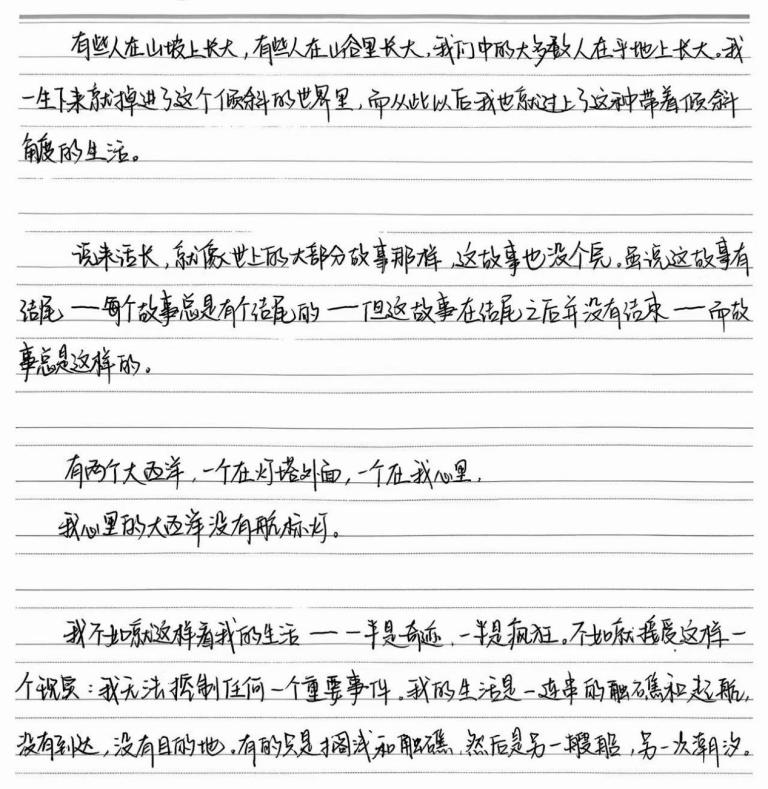 有些人在山坡上长大，有些人在山谷里长大，我们中的大多数人在平地上长大。我
一生下来就掉进了这个倾斜的世界里，而从此以后我也就过上了这种带着倾斜
角度的生活。
说来话长，就像世上的大部分故事那样，这故事也没个完。虽说这故事有
结尾——每个故事总是有个结尾的——但这故事在结尾之后并没有结束——而故
事总是这样的。
有两个大西洋，一个在灯塔外面，一个在我心里。
我心里的大西洋没有航标灯。
我不如就这样看我的生活——一半是奇迹，一半是疯狂。不如就接受这样一
个现实：我无法控制任何一个重要事件。我的生活是一连串的触礁和起航，
没有到达，没有目的地。有的只是搁浅和触礁，然后是另一艘船，另一次潮汐。